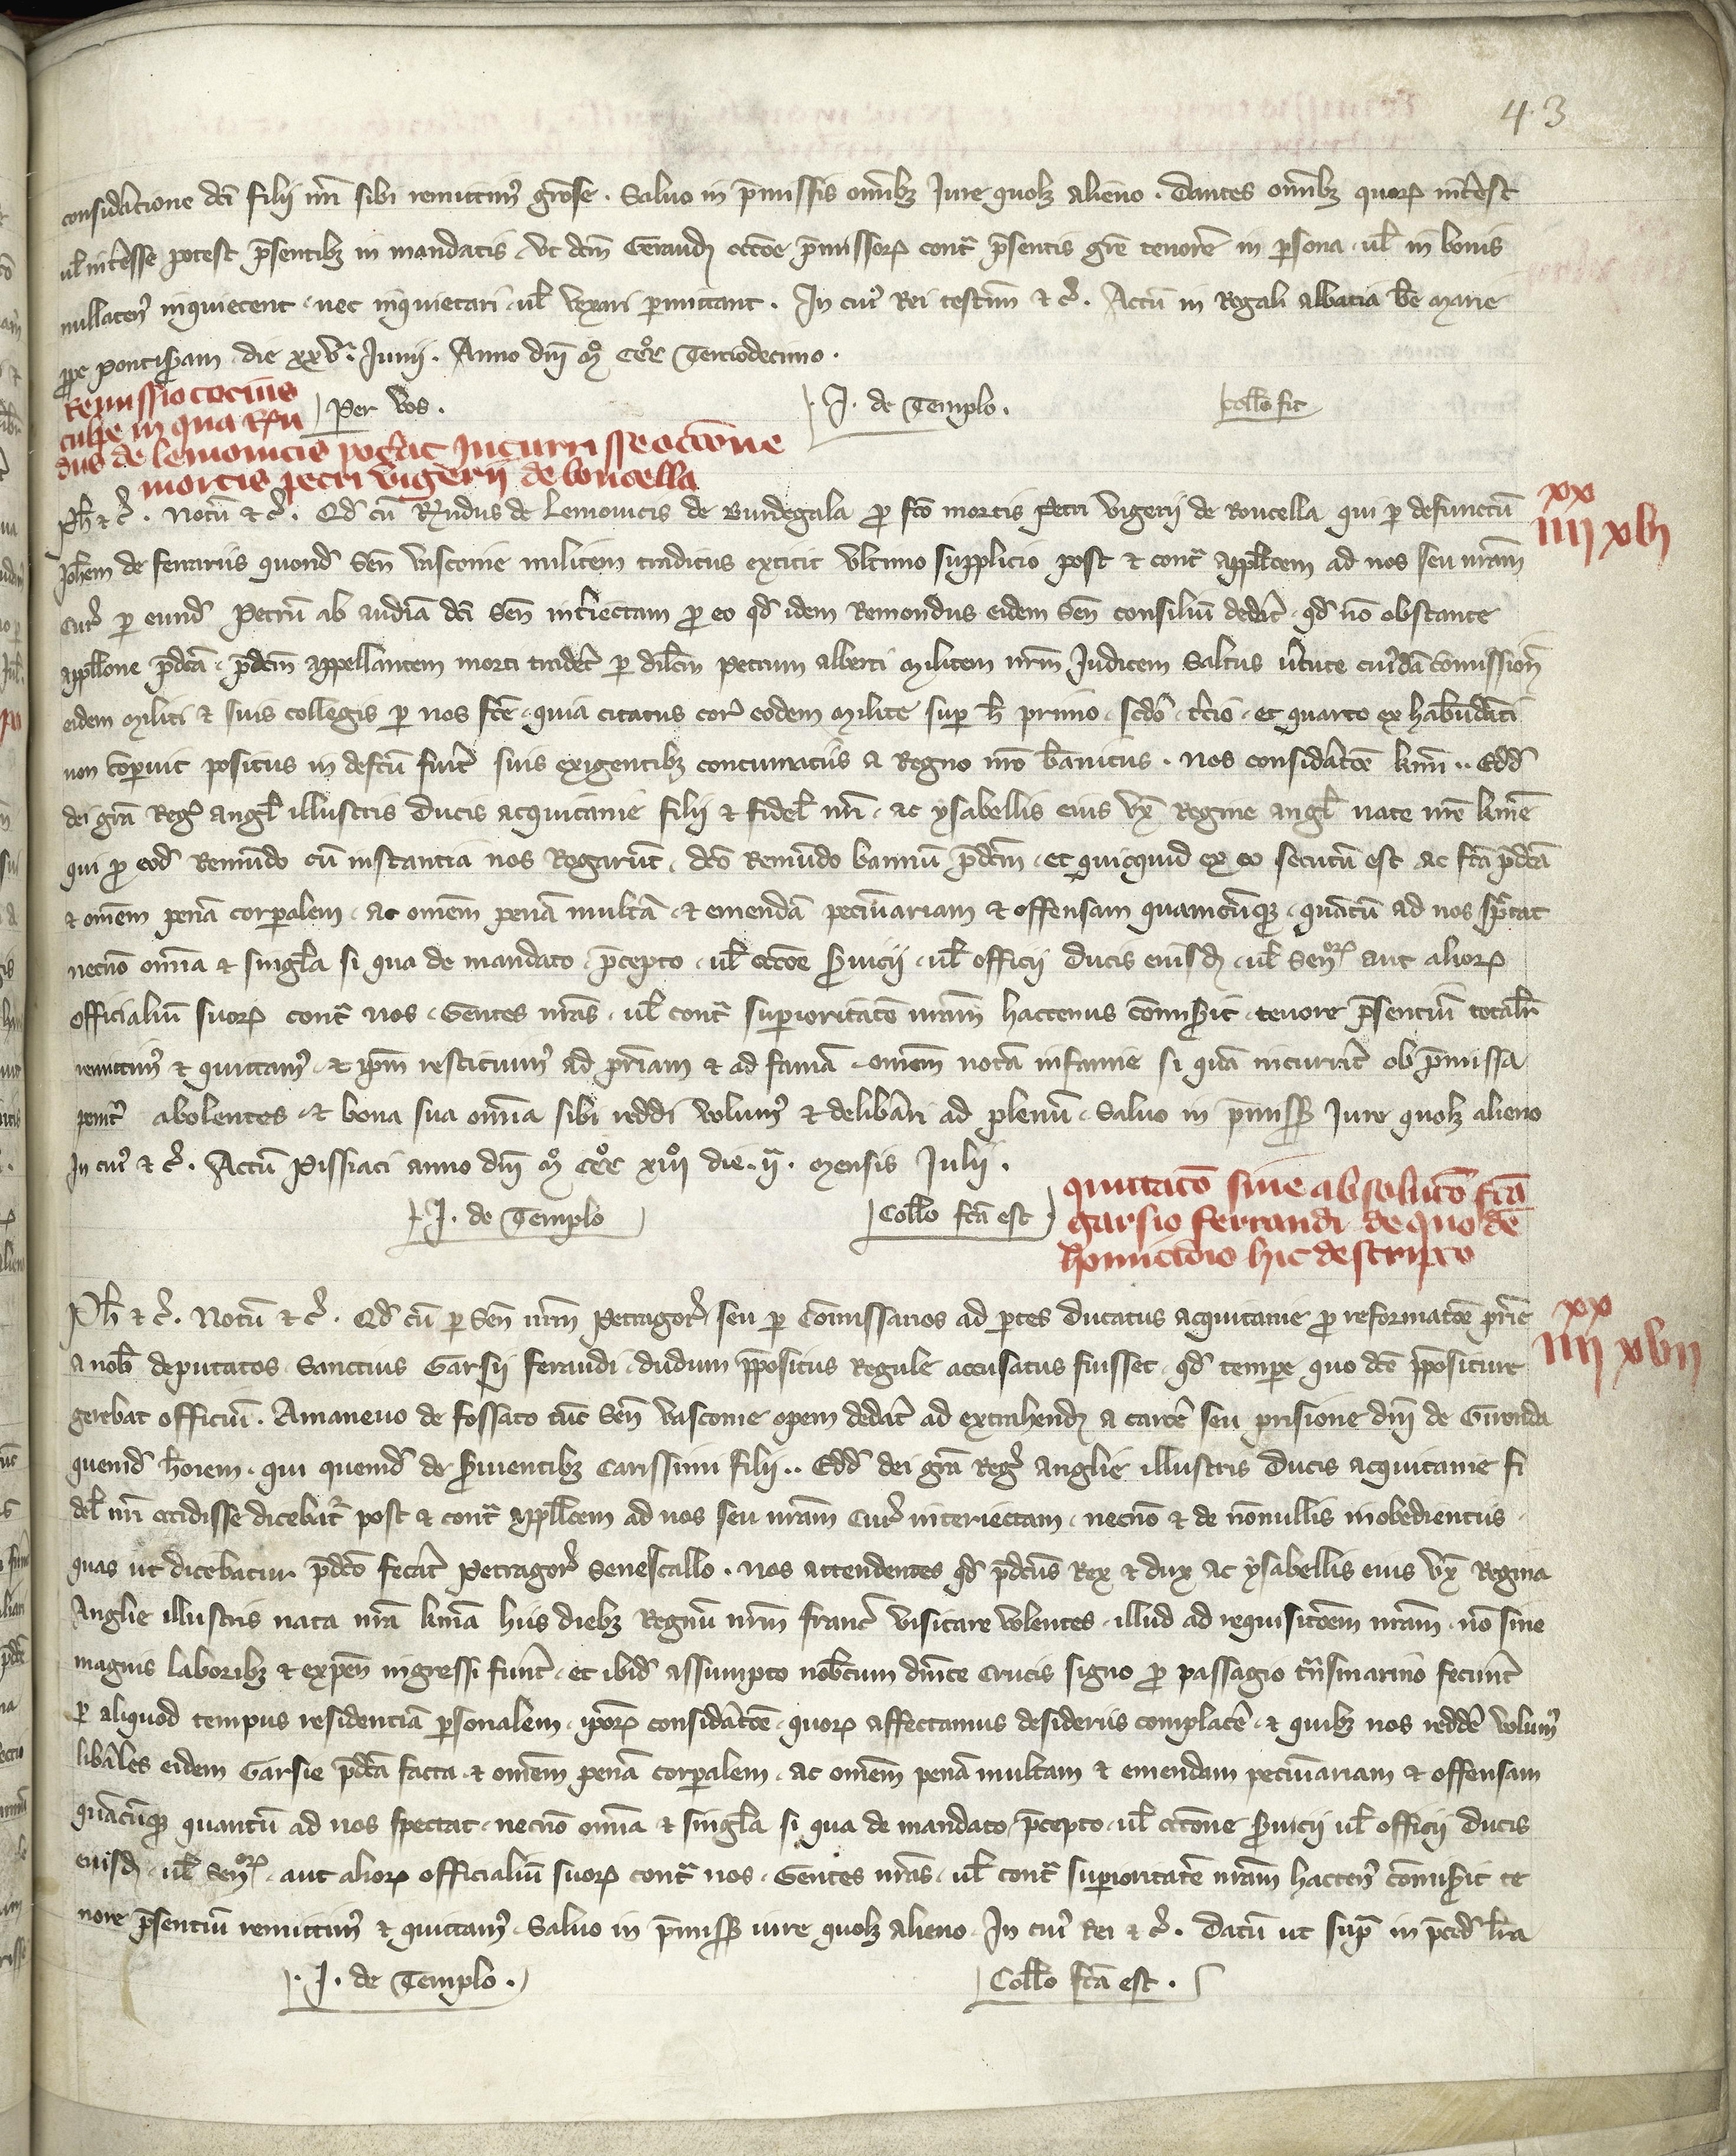 43
consideracione dci filii nri sibi remittimus grose. Salvo in pmissis omibz Jure quolz alieno. Dantes omibz quorum intest
ul intesse potest psentibz in mandatis. ut dcm Geraud occoe pmissorum contra psentis gre tenorem in persona ul in bonis
nullatenus inquietent nec inquietari ul vexari permittant. In cuius Rei testim & c. Actu in Regali abbatia be marie
prope pontisaram die xxv. Junii. Anno dni m ccc Terciodecimo.
Per vos. J. de Templo. Collo fit
Remissio tocius
culpe in qua Rmu
dus de lemovicis poterat incurrisse occone
mortis petri vigerii de Roucella
Ph & c. Notu & c. Qd cu Rmudus de Lemovicis de Burdegala pro fco mortis Petri Vigerii de Roucella qui per defunctu
Johem de ferrariis quond Sen Vasconie militem traditus extitit ultimo supplicio post & contra appllacoem ad nos seu nram
Cur per eund Petru ab audia dci Sen interiectam pro eo qd idem Remondus eidem Sen consiliu dedit qd no obstante
appllone pdca pdcm appellantem morti traderet per dilcm Petrum alberti militem nrm Judicem Saltus virtute cuiusda comission
eidem militi & suis collegis per nos fce quia citatus cora eodem milite super h primo scdo tcio et quarto ex habundanti
non comperuit positus in defcu fuit suis exigentibz contumaciis a Regno nro banitus. Nos consideracoe kmi .. Edd
dei gra Regis angl illustris Ducis acquitanie filii & fidel nri ac ysabellis eius ux Regine angl nate nre kme
qui pro eod Remundo cu instantia nos Rogarunt dco Remundo bannu pdcm et quicquid ex eo secutu est ac fca pdca
& omem pena corporalem ac omem pena multa & emenda pecuniariam & offensam quamcumque quatu ad nos spectat
necno omia & singula si qua de mandato pcepto ul occoe servicii ul officii Ducis eiusd ul Senorum aut aliorum
officialiu suorum contra nos Gentes nras ul contra superioritate nram hactenus comisit tenore psentiu totalr
remittimus & quittamus & ipm restituimus ad priam & ad fama omem nota infamie si qua incurrit ob pmissa
penitus abolentes & bona sua omia sibi reddi volumus & deliberari ad plenu Salvo in pmiss Jure quolz alieno
In cuius & c. Actu Pissiaci anno dni m ccc xiii die ii mensis Julii.
J. de Templo Collo fca est
quittaco sive absoluco fca
garsio ferrandi de quo de
homicidio hic descripto
xx
iiii xvi
Ph & c. Notu & c. Qd cu per Sen nrm Petragor seu per Comissarios ad ptes Ducatus acquitanie pro reformacoe prie
a nob deputatos Sanctius Garsii ferandi dudum ppositus Regule accusatus fuisset qd tempore quo dce ppositure
gerebat officiu. Amanevo de fossato tuc Sen Vasconie opem dederat ad extrahend a carcere seu prisione dni de Gironda
quemd hoiem qui quemd de servientibz Carissimi filii .. Edd dei gra Regis Anglie illustris Ducis acquitanie fi
del nri occidisse dicebatur post & contra appllacoem ad nos seu nram Cur interiectam necno & de nonullis inobedientiis
quas ut dicebatur pdco fecerat Petragor Senescallo. Nos attendentes qd pdcus Rex & dux ac ysabellis eius ux Regina
Anglie illustris nata nra kma hiis diebz Regnu nrm franc visitare volentes illud ad requisitoem nram no sine
magnis laboribz & expen ingressi funt et ibid assumpto nobcum dnice crucis signo pro passagio trnsmarino fecerint
per aliquod tempus residentia personalem iporum consideracoe quorum affectamus desideriis complacere & quibz nos reddere volumus
liberales eidem Garsie pdca facta & omem pena corporalem ac omem pena multam & emendam pecuniariam & offensam
quacumque quantu ad nos spectat necno omia & singula si qua de mandato pcepto ul occone servicii ul officii Ducis
eiusd ul Senorum aut aliorum officialiu suorum contra nos Gentes nras ul contra superioritate nram hactenus comisit te
nore psentiu remittimus & quittamus Salvo in pmiss iure quolz alieno In cuius Rei & c. Datu ut supra in pced lra
J. de Templo. Collo fca est.
xx
iiii xvii